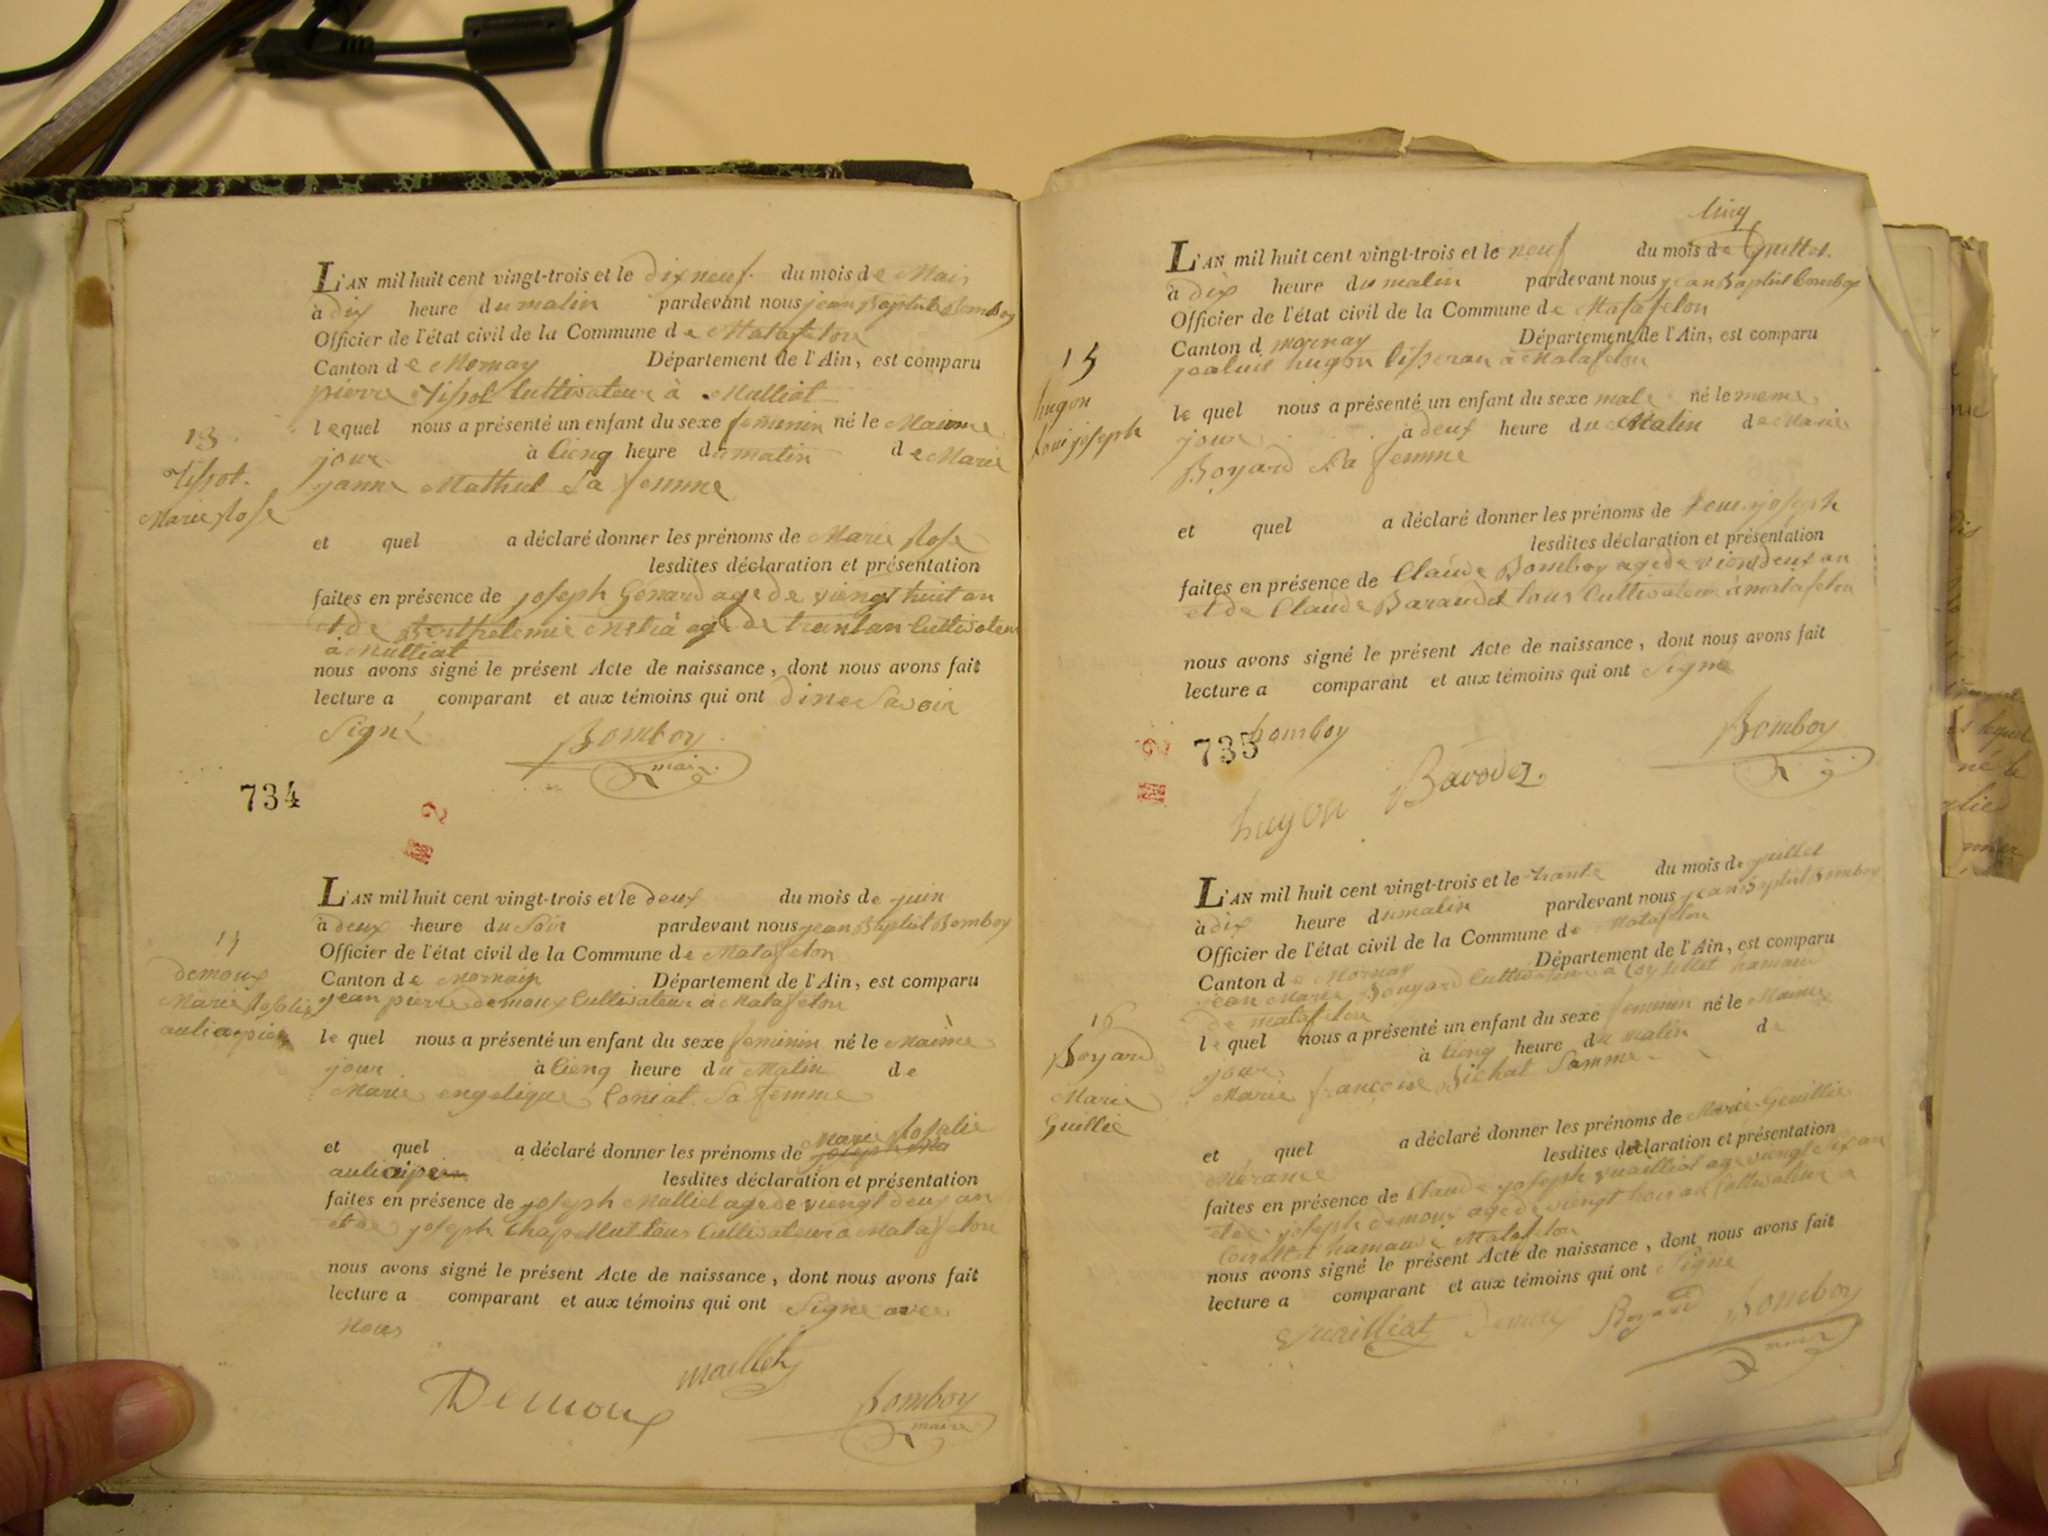 L'AN mil huit cent vingt-trois et le dix neuf du mois de Mais
à dix heure du matin pardevant nous jean Baptiste Bomboy
Officier de l'état civil de la Commune de Matafelon
Canton de Mornay Département de l'Ain, est comparu
pierre tissot Cultivateur à Malliat
lequel nous a présenté un enfant du sexe feminin né le Maime
jour à Cienq heure du matin de Marie
janne Mathul Sa femme
13
tissot
Marie Rose
et quel a déclaré donner les prénoms de Marie Rose
lesdites déclaration et présentation
faites en présence de joseph Génard age de viengt huit an
et de age de trantan Cultivateur
à Mulliat
nous avons signé le présent Acte de naissance, dont nous avons fait
lecture a comparant et aux témoins qui ont dine Savoir
Signé
Bomboy
maire
734
L'AN mil huit cent vingt-trois et le deux du mois de juin
à deux heure du Soir pardevant nous jean Baptist Bomboy
Officier de l'état civil de la Commune de Matafelon
Canton de Mornain Département de l'Ain, est comparu
jean pierre demoux Cultivateur à Matafelon
14
demoux
Marie Rosalie
le quel nous a présenté un enfant du sexe feminin né le Maime
jour à Cienq heure du Matin de
Marie engelique Sa femme
et quel a déclaré donner les prénoms de Marie Rosalie
lesdites déclaration et présentation
faites en présence de joseph Malliet age de viengt deux an
et de joseph tous Cultivateur a Matafelon
nous avons signé le présent Acte de naissance, dont nous avons fait
lecture a comparant et aux témoins qui ont Signe avec
nous
Demoux
Bomboy
maire
L'AN mil huit cent vingt-trois et le neuf du mois de juillet
à dix heure du matin pardevant nous jean Baptist Bomboy
Officier de l'état civil de la Commune de Matafelon
Canton d mornay Département de l'Ain, est comparu
hugon tisseran a Matafelon
15
hugon
Loui joseph
le quel nous a présenté un enfant du sexe male né le meme
jour à deux heure du Matin de Marie
Boyard Sa femme
et quel a déclaré donner les prénoms de Loui joseph
lesdites déclaration et présentation
faites en présence de Claude Bomboy age de vient deux an
et de Claude tous Cultivateur à matafelon
nous avons signé le présent Acte de naissance, dont nous avons fait
lecture a comparant et aux témoins qui ont Signe
735
bomboy
Bomboy
hugon
L'AN mil huit cent vingt-trois et le trante du mois de juillet
à dix heure du matin pardevant nous jean Baptist Bomboy
Officier de l'état civil de la Commune de Matafelon
Canton de Mornay Département de l'Ain, est comparu
jean Marie Bouyard Cultivateur a hamau
de matafelon
16
Boyard
Marie
Guillie
le quel nous a présenté un enfant du sexe feminin né le Maime
jour à Cienq heure du matin de
Marie francoise Bichat Samme
et quel a déclaré donner les prénoms de Marie Geuillie
Mérance lesdites déclaration et présentation
faites en présence de Claude joseph vuailliat age viengt Six an
et de joseph demoux age de viengt trois an Cultivateur a
hamau de Matafelon
nous avons signé le présent Acte de naissance, dont nous avons fait
lecture a comparant et aux témoins qui ont Signe
vuailliat Demoux Boyard Bomboy